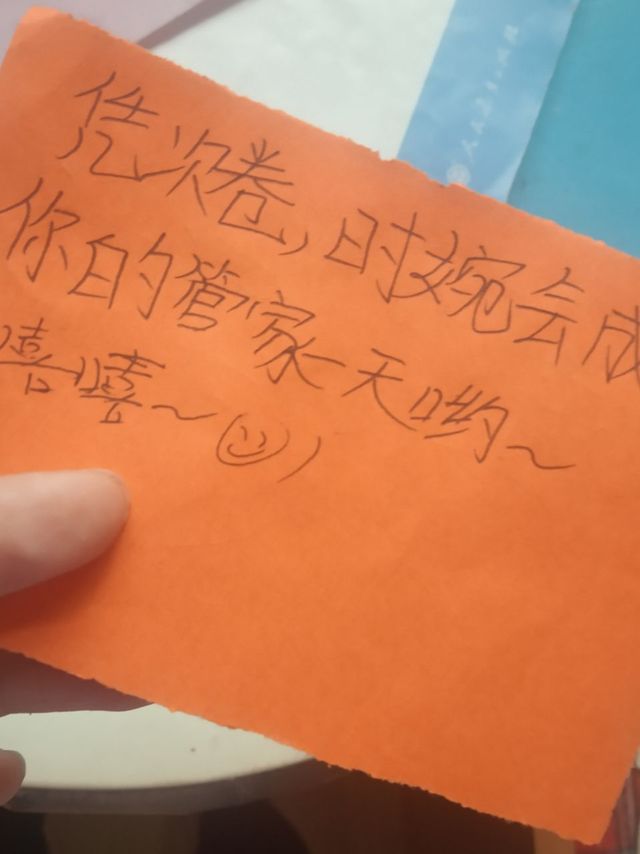 凭次卷，时婉会成
你的管家一天哟~
嘻嘻~